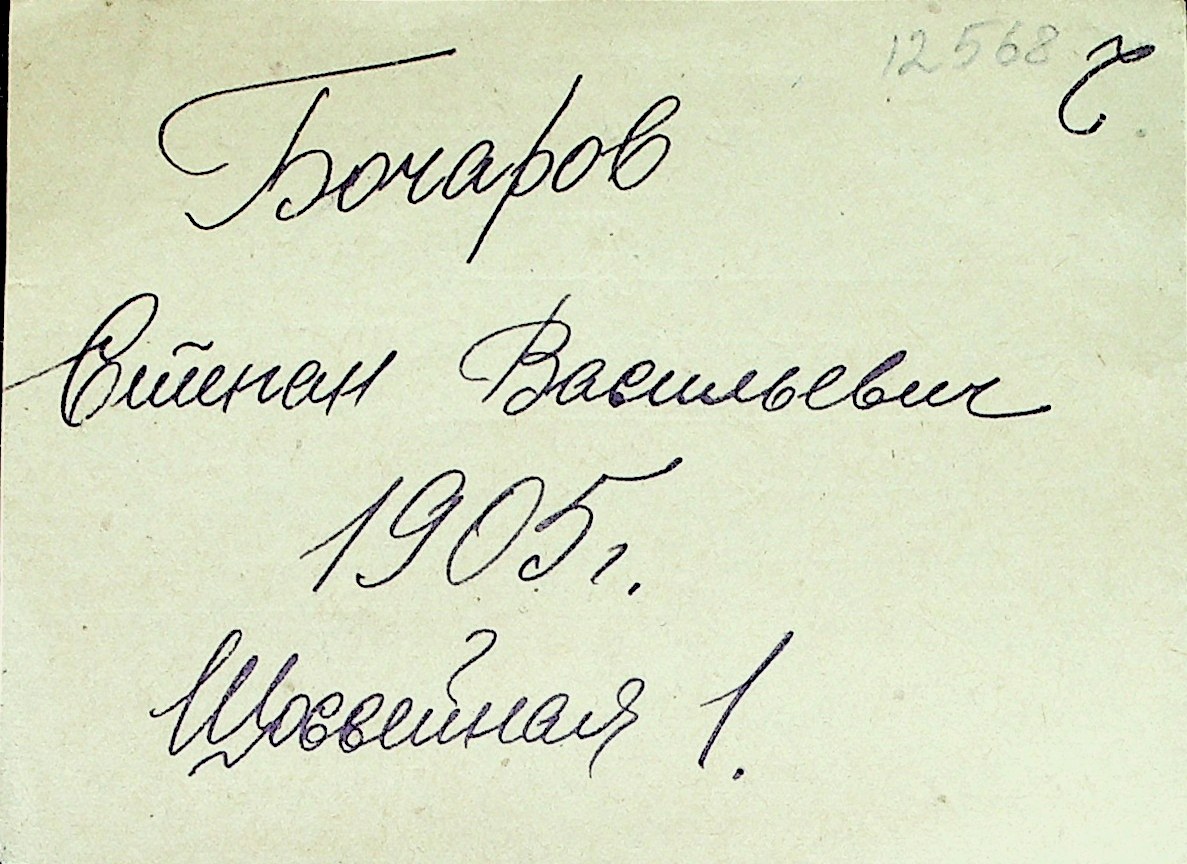 12568
Бочаров
Степан Васильевич
1905г.
Шоссейная 1.